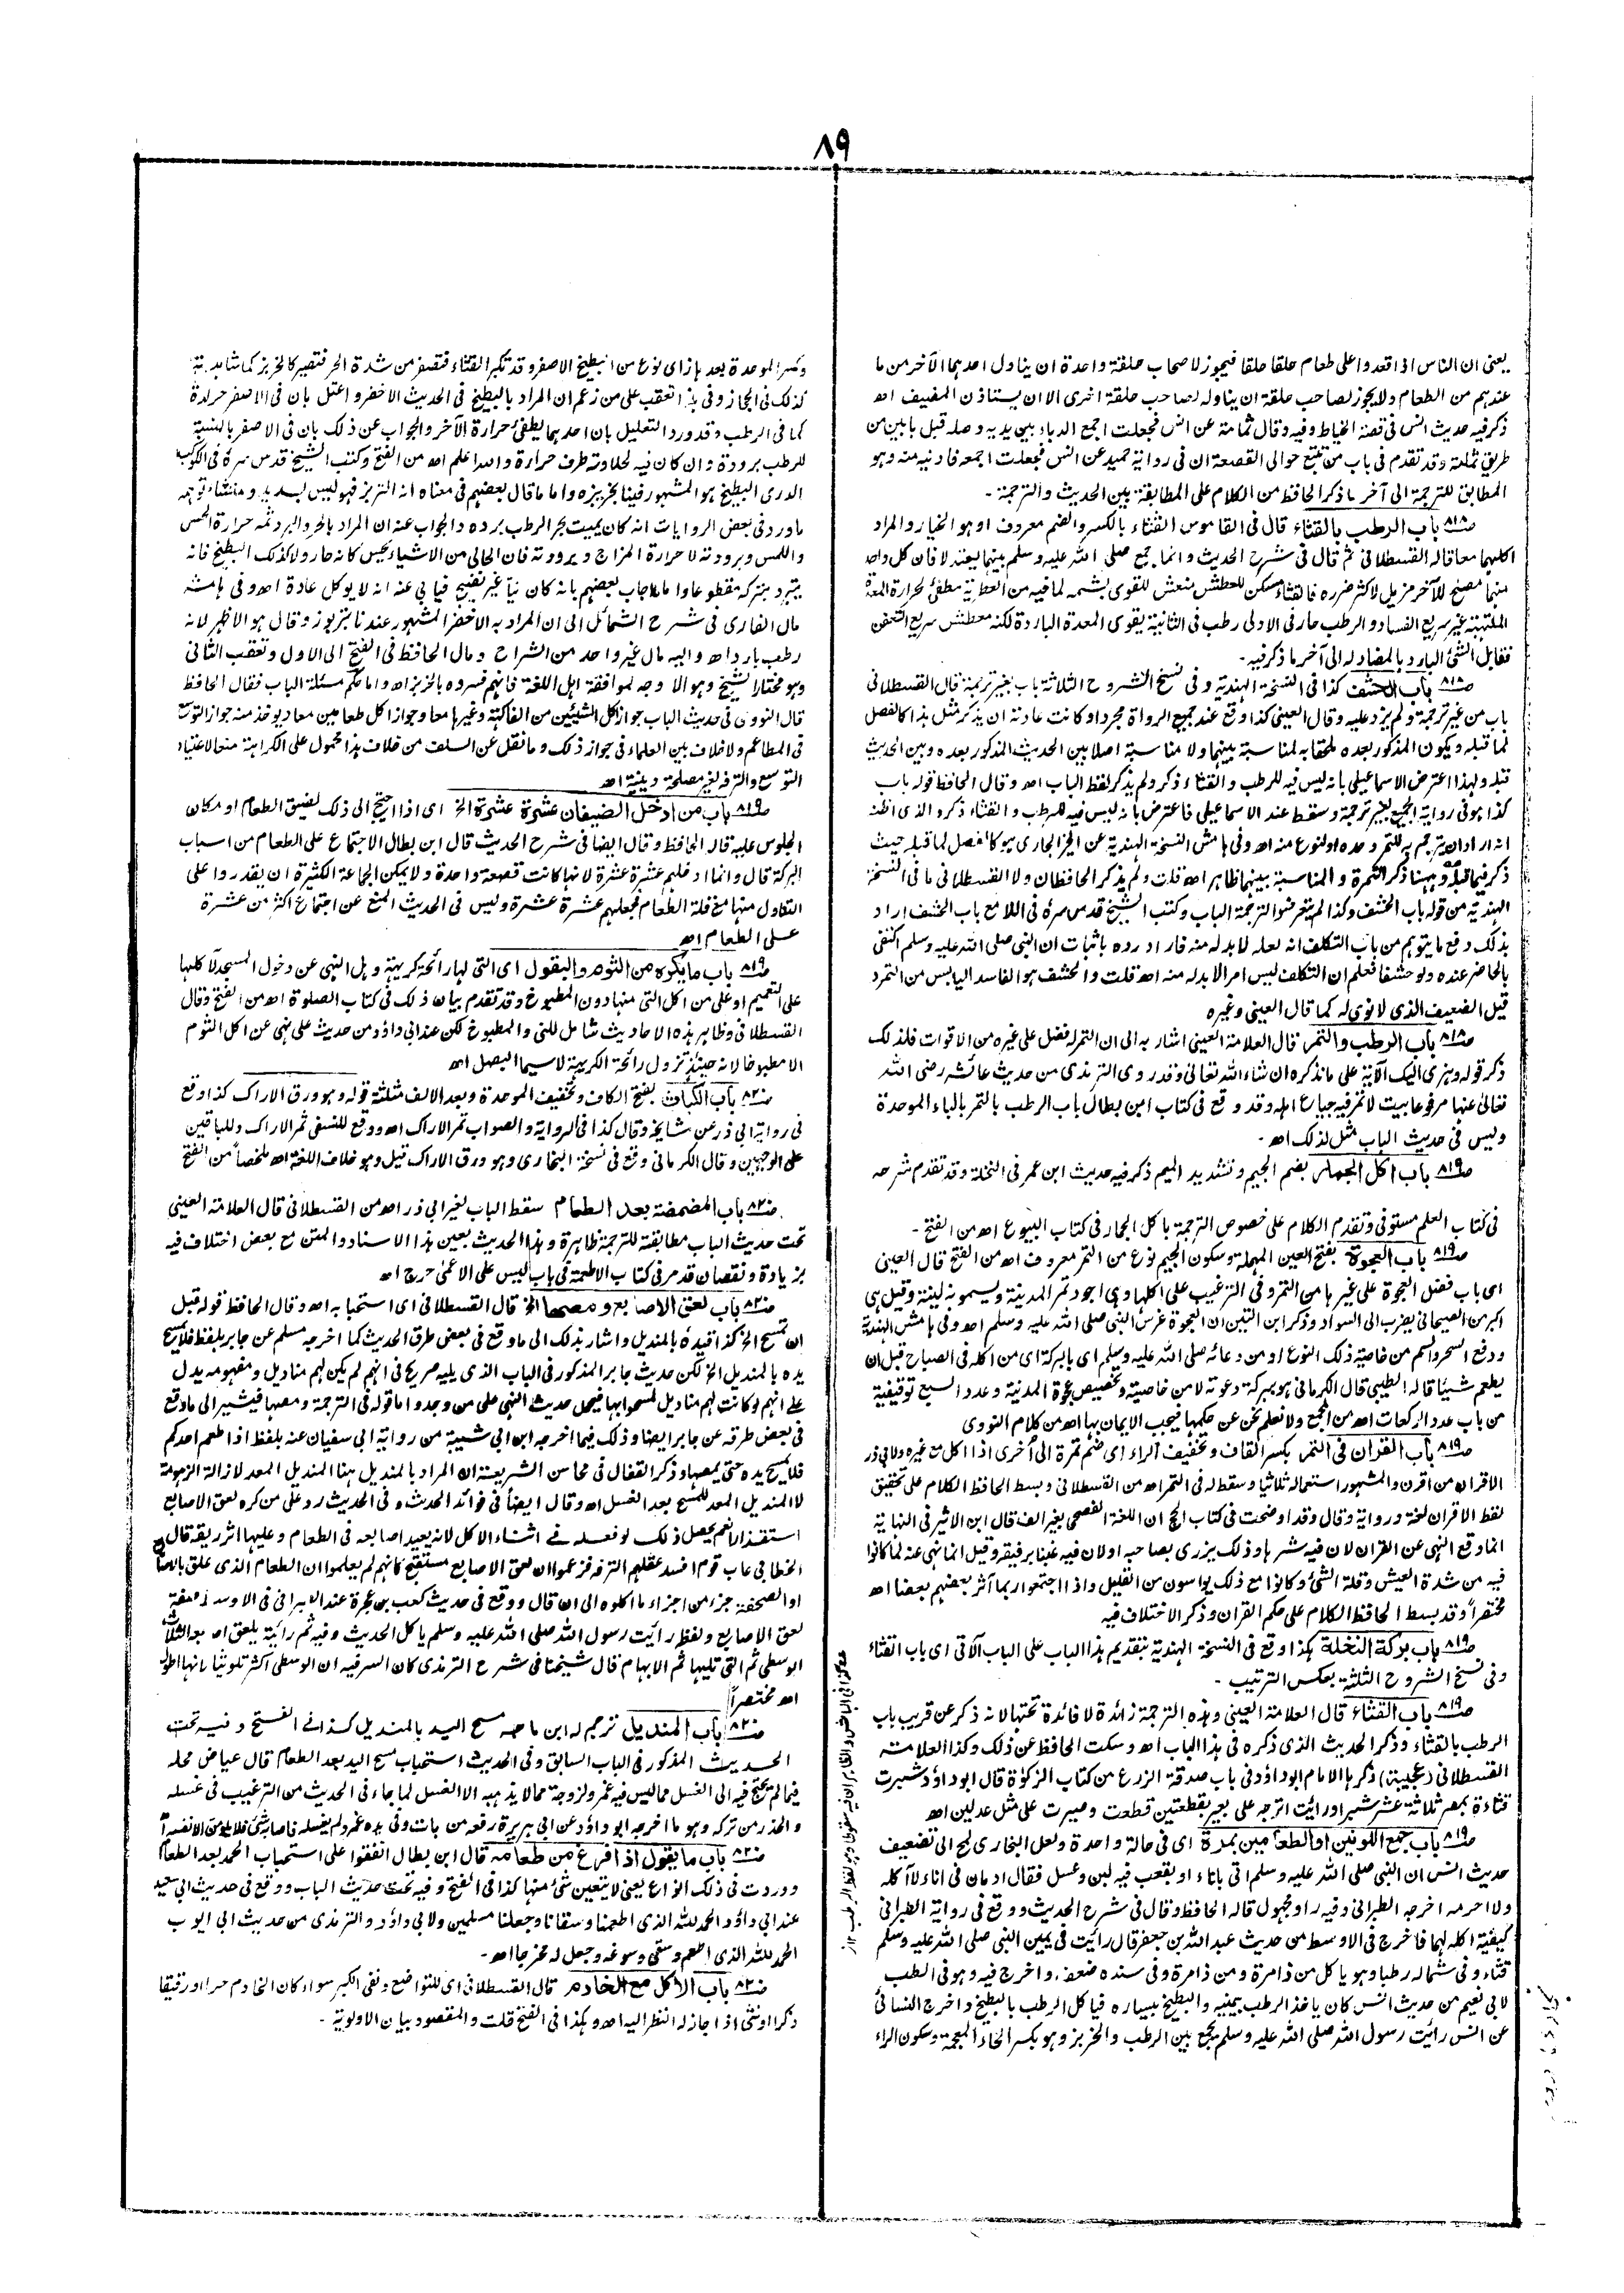 ٨٩
يعنى ان الناس اذا قعدوا على طعام حلقا حلقا فيجوز لاصحاب حلقة واحدة ان يناول احدهما الآخر من ما
عندهم من الطعام ولا يجوز لصاحب حلقة ان يناوله لصاحب حلقة اخرى الا ان يستاذن المضيف اھ
ذكر فيه حديث انس فى قصة الخياط وفيه وقال ثمامة عن انس فجعلت اجمع الدباء بين يديه وصله قبل بابين من
طريق ثمامة وقد تقدم فى باب من تتبع حوالى القصعة ان فى رواية حميد عن انس فجعلت اجمعه فادنيه منه وهو
المطابق للترجمة الى آخر ما ذكر الحافظ من الكلام على المطابقة بين الحديث والترجمة ۔
ص٨١٨ باب الرطب بالقثاء قال فى القاموس القثاء بالكسر والضم معروف او هو الخيار والمراد
اكلهما معا قاله القسطلانى ثم قال فى شرح الحديث وانما جمع صلى الله عليه وسلم بينهما ليعتدلا فان كل واحد
منهما مصلح للآخر مزيل لاكثر ضرره فالقثاء مسكن للعطش منعش للقوى بشمه لما فيه من العطرية مطفئ لحرارة المعدة
الملتهبة غير سريع الفساد والرطب حار فى الاولى رطب فى الثانية يقوى المعدة الباردة لكنه معطش سريع التعفن
فقابل الشئ البارد بالمضاد له الى آخر ما ذكر فيه ۔
ص٨١٨ باب الحشف كذا فى النسخة الهندية وفى نسخ الشروح الثلاثة باب بغير ترجمة قال القسطلانى
باب من غير ترجمة ولم يزد عليه وقال العينى كذا وقع عند جميع الرواة مجردا وكانت عادته ان يذكر مثل هذا كالفصل
لما قبله ويكون المذكور بعده ملحقا به لمناسبة بينهما ولا مناسبة اصلا بين الحديث المذكور بعده وبين الحديث
قبله ولهذا اعترض الاسماعيلى بانه ليس فيه للرطب والقثاء ذكر ولم يذكر لفظ الباب اھ وقال الحافظ قوله باب
كذا هو فى رواية الجميع بغير ترجمة وسقط عند الاسماعيلى فاعترض بانه ليس فيه للرطب والقثاء ذكر والذى اظنه
انه اراد ان يترجم به للتمر وحده او لنوع منه اھ وفى هامش النسخة الهندية عن الخير الجارى هو كالفصل لما قبله حيث
ذكر فيما قبله وههنا ذكر الثمرة والمناسبة بينهما ظاهر اھ قلت ولم يذكر الحافظان ولا القسطلانى ما فى النسخة
الهندية من قوله باب الحشف وكذا لم يتعرضوا لترجمة الباب وكتب الشيخ قدس سره فى اللامع باب الحشف اراد
بذلك دفع ما يتوهم من باب التكلف انه لعله لا بد له منه فاراد رده باثبات ان النبى صلى الله عليه وسلم اكتفى
بالحاضر عنده ولو حشفا فعلم ان التكلف ليس امر الا بد له منه اھ قلت والحشف هو الفاسد اليابس من التمر و
قيل الضعيف الذى لا نوى له كما قال العينى وغيره
ص٨١٨ باب الرطب والتمر قال العلامة العينى اشار به الى ان التمر له فضل على غيره من الاقوات فلذلك
ذكر قوله وهزى اليك الآية على ما نذكره ان شاء الله تعالى وقد روى الترمذى من حديث عائشه رضى الله
تعالى عنها مرفوعا بيت لا تمر فيه جياع اهله وقد وقع فى كتاب ابن بطال باب الرطب بالتمر بالباء الموحدة
وليس فى حديث الباب مثل لذلك اھ ۔
ص٨١٩ باب اكل الجمار بضم الجيم وتشديد الميم ذكر فيه حديث ابن عمر فى النخلة وقد تقدم شرحه
فى كتاب العلم مستوفى وتقدم الكلام على خصوص الترجمة باكل الجمار فى كتاب البيوع اھ من الفتح ۔
ص٨١٩ باب العجوة بفتح العين المهملة وسكون الجيم نوع من التمر معروف اھ من الفتح قال العينى
اى باب فضل العجوة على غيرها من التمر وفى الترغيب على اكلها وهى اجود تمر المدينة ويسمونه لينة وقيل هى
اكبر من الصيحانى يضرب الى السواد وذكر ابن التين ان العجوة غرس النبى صلى الله عليه وسلم اھ وفى هامش الهندية
ودفع السحر والسم من خاصية ذلك النوع او من دعائه صلى الله عليه وسلم اى بالبركة اى من اكله فى الصباح قبل ان
يطعم شيئا قاله الطيبى قال الكرمانى هو ببركة دعوته لا من خاصيته وتخصيص عجوة المدينة وعدد السبع توقيفية
من باب عدد الركعات اھ من المجمع ولا نعلم نحن عن حكمها فيجب الايمان بها اھ من كلام النووى
ص٨١٩ باب القران فى التمر بكسر القاف وتخفيف الراء اى ضم تمرة الى اخرى اذا اكل مع غيره ولابى ذر
الاقران من اقرن والمشهور استعماله ثلاثيا وسقط له فى التمر اھ من القسطلانى وبسط الحافظ الكلام على تحقيق
لفظ الاقران لغة ورواية وقال وقد اوضحت فى كتاب الحج ان اللغة الفصحى بغير الف قال ابن الاثير فى النهاية
انما وقع النهى عن القران لان فيه شرها وذلك يزرى بصاحبه او لان فيه غبنا برفيقه وقيل انما نهى عنه لما كانوا
فيه من شدة العيش وقلة الشئ وكانوا مع ذلك يواسون من القليل واذا اجتمعوا ربما آثر بعضهم بعضا اھ
مختصراً وقد بسط الحافظ الكلام على حكم القران وذكر الاختلاف فيه
ص٨١٩ باب بركة النخلة هكذا وقع فى النسخة الهندية بتقديم هذا الباب على الباب الآتى اى باب القثاء
وفى نسخ الشروح الثلثة بعكس الترتيب ۔
ص٨١٩ باب القثاء قال العلامة العينى وهذه الترجمة زائدة لا فائدة تحتها لانه ذكر عن قريب باب
الرطب بالقثاء وذكر الحديث الذى ذكره فى هذا الباب اھ وسكت الحافظ عن ذلك وكذا العلامة
القسطلانى (عجيبة) ذكرها الامام ابو داؤد فى باب صدقة الزرع من كتاب الزكوة قال ابو داؤد شبرت
قثاءة بمصر ثلاثة عشر شبرا ورائيت اترجه على بعير بقطعتين قطعت وصيرت على مثل عدلين اھ
ص٨١٩ باب جمع اللونين او الطعامين بمرة اى فى حالة واحدة ولعل البخارى لمح الى تضعيف
حديث انس ان النبى صلى الله عليه وسلم اتى باناء او بقعب فيه لبن وعسل فقال ادمان فى اناء لا آكله
ولا احرمه اخرجه الطبرانى وفيه راو مجهول قاله الحافظ وقال فى شرح الحديث ووقع فى رواية الطبرانى
كيفية اكله لهما فاخرج فى الاوسط من حديث عبد الله بن جعفر قال رائيت فى يمين النبى صلى الله عليه وسلم
قثاء وفى شماله رطبا وهو ياكل من ذا مرة ومن ذا مرة وفى سنده ضعف واخرج فيه وهو فى الطب
لابى نعيم من حديث انس كان ياخذ الرطب بيمينه والبطيخ بيساره فيأكل الرطب بالبطيخ واخرج النسائى
عن انس رائيت رسول الله صلى الله عليه وسلم يجمع بين الرطب والخربز وهو بكسر الخاء المعجمة وسكون الراء
وكسر الموحدة بعدها زاى نوع من البطيخ الاصفر وقد تكبر القثاء فتصفر من شدة الحر فتصير كالخربز كما شاهدته
كذلك فى الحجاز وفى هذا تعقب على من زعم ان المراد بالبطيخ فى الحديث الاخضر واعتل بان فى الاصفر حرارة
كما فى الرطب وقد ورد التعليل بان احدهما يطفئ حرارة الآخر والجواب عن ذلك بان فى الاصفر بالنسبة
للرطب برودة وان كان فيه لحلاوته طرف حرارة والله اعلم اھ من الفتح وكتب الشيخ قدس سره فى الكوكب
الدرى البطيخ هو المشهور فينا بخربزه واما ما قال بعضهم فى معناه انه التربز فهو ليس بسديد ومنشاء توجهه
ماورد فى بعض الروايات انه كان يميت بحر الرطب برده والجواب عنه ان المراد بالحر والبرد ثمه حرارة الحس
واللمس وبرودته لا حرارة المزاج وبرودته فان الحالى من الاشياء يحس كانه حار ولا كذلك البطيخ فانه
يتبرد بتركه مقطوعا واما ما اجاب بعضهم بانه كان نيئا غير نضيج فيابى عنه انه لا يوكل عادة اھ وفى هامشه
مال القارى فى شرح الشمائل الى ان المراد به الاخضر المشهور عندنا بتربوز وقال هو الاظهر لانه
رطب بارد اھ واليه مال غير واحد من الشراح ومال الحافظ فى الفتح الى الاول وتعقب الثانى
وهو مختار الشيخ وهو الاوجه لموافقة اهل اللغة فانهم فسروه بالخربز اھ واما حكم مسئلة الباب فقال الحافظ
قال النووى فى حديث الباب جواز اكل الشيئين من الفاكهة وغيرها معا وجواز اكل طعامين معا ويوخذ منه جواز التوسع
فى المطاعم ولا خلاف بين العلماء فى جواز ذلك وما نقل عن السلف من خلاف هذا محمول على الكراهة منعا لاعتياد
التوسع والترفه لغير مصلحة دينية اھ
ص٨١٩ باب من ادخل الضيفان عشرة عشرة الخ اى اذا احتيج الى ذلك لضيق الطعام او مكان
الجلوس عليه قاله الحافظ وقال ايضا فى شرح الحديث قال ابن بطال الاجتماع على الطعام من اسباب
البركة قال وانما ادخلهم عشرة عشرة لانها كانت قصعة واحدة ولا يمكن الجماعة الكثيرة ان يقدروا على
التناول منها مع قلة الطعام فجعلهم عشرة عشرة وليس فى الحديث المنع عن اجتماع اكثر من عشرة
على الطعام اھ
ص٨١٩ باب ما يكره من الثوم والبقول اى التى لها رائحة كريهة وهل النهى عن دخول المسجد لآكلها
على التعميم او على من اكل التى منها دون المطبوخ وقد تقدم بيان ذلك فى كتاب الصلوة اھ من الفتح وقال
القسطلانى وظاهر هذه الاحاديث شامل للنى والمطبوخ لكن عند ابى داؤد من حديث على نهى عن اكل الثوم
الا مطبوخا لانه حينئذ تزول رائحة الكريهة لاسيما البصل اھ
ص٨٢٠ باب الكباث بفتح الكاف وتخفيف الموحدة وبعد الالف مثلثة قوله وهو ورق الاراك كذا وقع
فى رواية ابى ذر عن مشايخه وقال كذا فى الرواية والصواب ثمر الاراك اھ ووقع للنسفى ثمر الاراك وللباقين
على الوجهين وقال الكرمانى وقع فى نسخة البخارى وهو ورق الاراك قيل وهو خلاف اللغة اھ ملخصاً من الفتح
ص٨٢٠ باب المضمضة بعد الطعام سقط الباب لغير ابى ذر اھ من القسطلانى قال العلامة العينى
تحت حديث الباب مطابقته للترجمة ظاهرة وهذا الحديث بعين هذا الاسناد والمتن مع بعض اختلاف فيه
بزيادة ونقصان قد مر فى كتاب الاطعمة فى باب ليس على الاعمى حرج اھ
ص٨٢٠ باب لعق الاصابع ومصها الخ قال القسطلانى اى استحبابه اھ وقال الحافظ قوله قبل
ان تمسح الخ كذا قيده بالمنديل واشار بذلك الى ما وقع فى بعض طرق الحديث كما اخرجه مسلم عن جابر بلفظ فلا يمسح
يده بالمنديل الخ لكن حديث جابر المذكور فى الباب الذى يليه صريح فى انهم لم يكن لهم مناديل ومفهومه يدل
على انهم لو كانت لهم مناديل لمسحوا بها فيحمل حديث النهى على من وجد واما قوله فى الترجمة ومصها فيشير الى ما وقع
فى بعض طرقه عن جابر ايضا وذلك فيما اخرجه ابن ابى شيبة من رواية ابى سفيان عنه بلفظ اذا طعم احدكم
فلا يمسح يده حتى يمصها وذكر القفال فى محاسن الشريعة ان المراد بالمنديل هنا المنديل المعد لازالة الزهومة
لا المنديل المعد للمسح بعد الغسل اھ وقال ايضاً فى فوائد الحديث وفى الحديث رد على من كره لعق الاصابع
استقذارا نعم يحصل ذلك لو فعله فى اثناء الاكل لانه يعيد اصابعه فى الطعام وعليها اثر ريقه قال
الخطابى عاب قوم افسد عقلهم الترفه فزعموا ان لعق الاصابع مستقبح كانهم لم يعلموا ان الطعام الذى علق بالاصابع
او الصحفة جزء من اجزاء ما اكلوه الى ان قال ووقع فى حديث كعب بن عجرة عند الطبرانى فى الاوسط صفة
لعق الاصابع ولفظه رائيت رسول الله صلى الله عليه وسلم ياكل الحديث وفيه ثم رائيته يلعق اصابعه الثلاث
الوسطى ثم التى تليها ثم الابهام قال شيخنا فى شرح الترمذى كان السر فيه ان الوسطى اكثر تلويثا لانها اطول
اھ مختصراً
ص٨٢٠ باب المنديل ترجم له ابن ماجه مسح اليد بالمنديل كذا فى الفتح وفيه تحت
الحديث المذكور فى الباب السابق وفى الحديث استحباب مسح اليد بعد الطعام قال عياض محله
فيما لم يحتج فيه الى الغسل مما ليس فيه غمر ولزوجة مما لا يذهبه الا الغسل لما جاء فى الحديث من الترغيب فى غسله
والحذر من تركه وهو ما اخرجه ابو داؤد عن ابى هريرة رفعه من بات وفى يده غمر ولم يغسله فاصابه شئ فلا يلومن الا نفسه اھ
ص٨٢٠ باب ما يقول اذا فرغ من طعامه قال ابن بطال اتفقوا على استحباب الحمد بعد الطعام
ووردت فى ذلك انواع يعنى لا يتعين شئ منها كذا فى الفتح وفيه تحت حديث الباب ووقع فى حديث ابى سعيد
عند ابى داؤد الحمد لله الذى اطعمنا وسقانا وجعلنا مسلمين ولابى داؤد والترمذى من حديث ابى ايوب
الحمد لله الذى اطعم وسقى وسوغه وجعل له مخرجا اھ ۔
ص٨٢٠ باب الاكل مع الخادم قال القسطلانى اى للتواضع ونفى الكبر سواء كان الخادم حرا او رقيقا
ذكرا او انثى اذا جاز له النظر اليه اھ وهكذا فى الفتح قلت والمقصود بيان الاولوية ۔